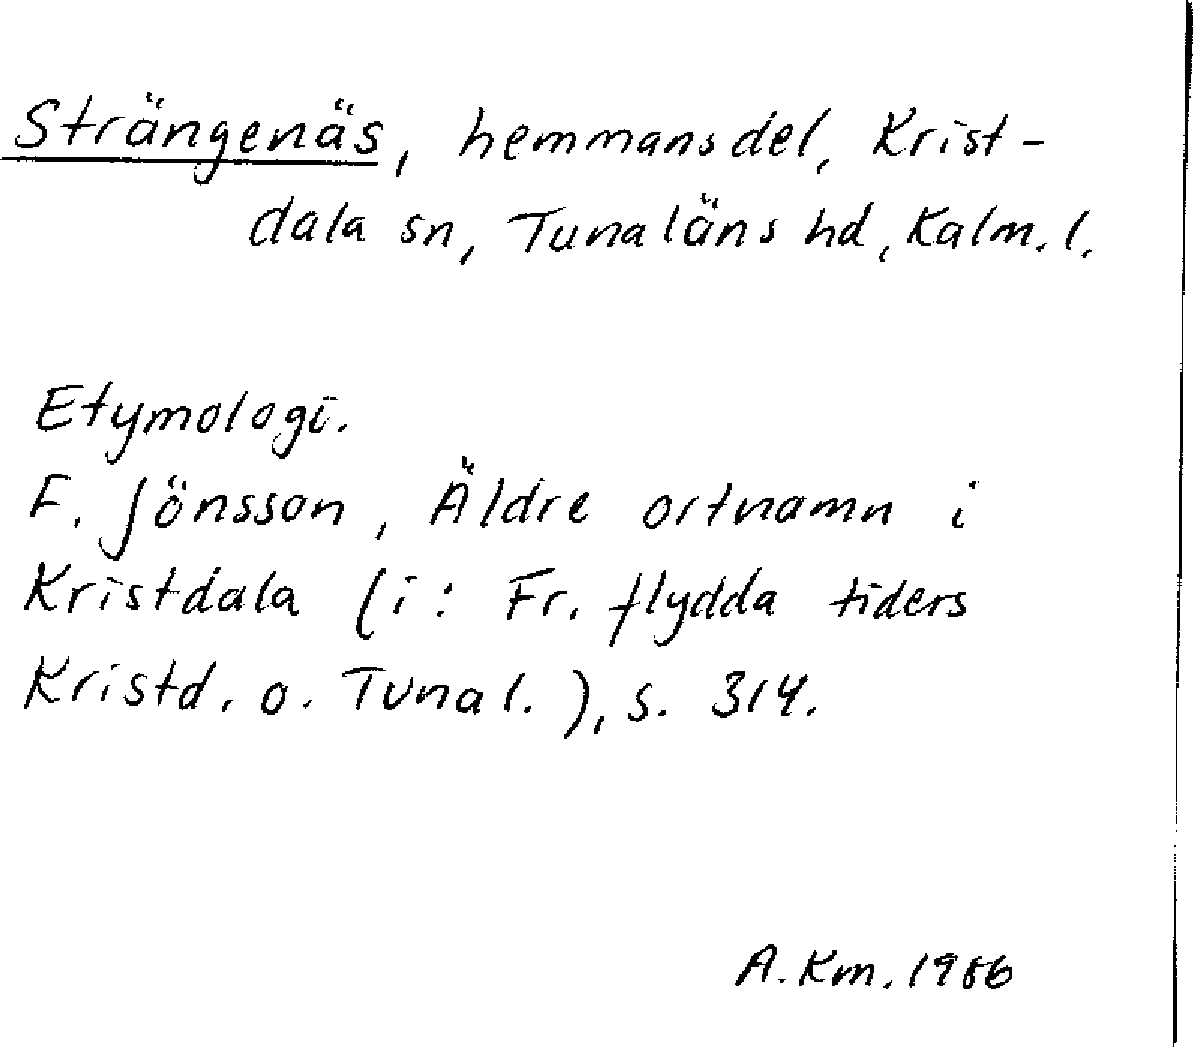 Strängenäs, hemmansdel, Krist-
dala sn, Tunaläns hd, Kalm. l.
Etymologi.
F. Jönsson, Äldre ortnamn i
Kristdala (i: Fr. flydda tiders
Kristd. o. Tunal.), s. 314.
A. Km. 1956